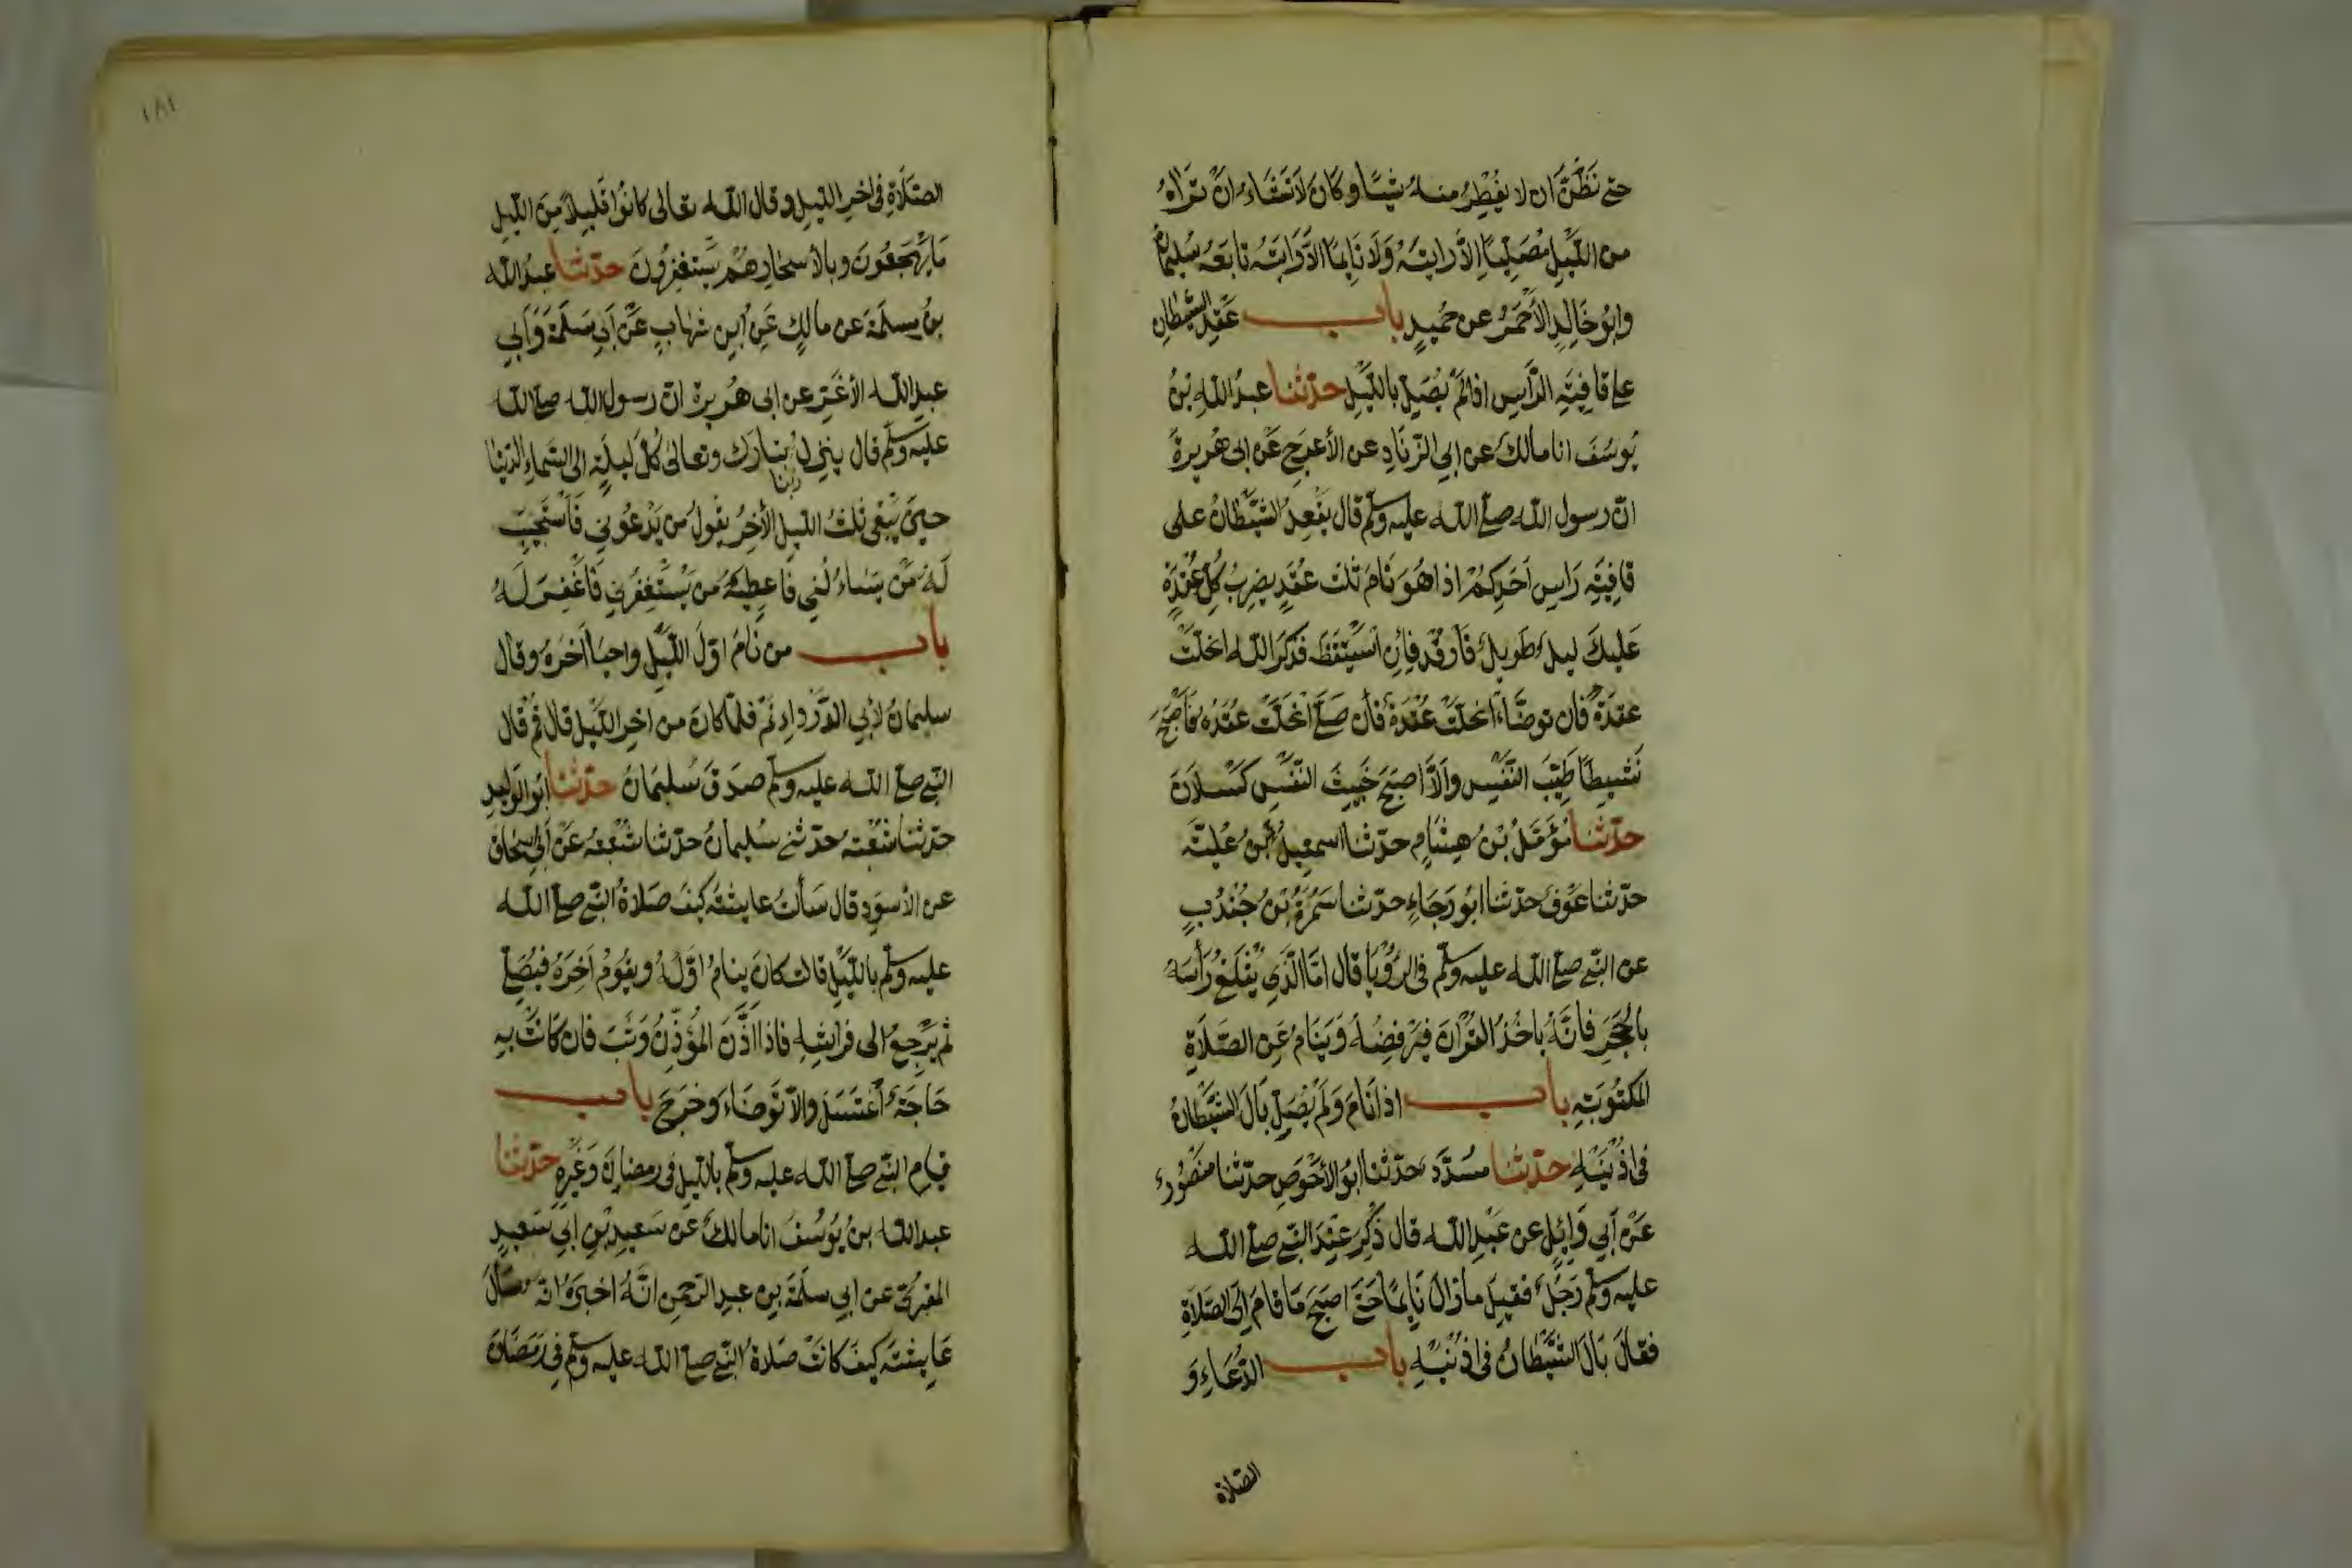 حتى نَظُنَّ ان لا يُفْطِرُ منه شيئًا وكَانَ لاَ تَشَاءُ انْ تَراهُ
من اللَّيْلِ مُصَلِّيًا اِلاَّ رايتَهُ وَلاَ نَايِمًا الاَّ رَايتَهُ تابَعَهُ سُليمانُ
وابُو خَالِدٍ الأَحْمَرُ عن حُمَيدٍ باب عَقْدِ الشَّيْطانِ
على قافِيَةِ الرَّاسِ اذا لَمْ يُصَلِّ باللَّيْلِ حدّثنا عبدُ اللهِ بنُ
يُوسُفَ انا مالكٌ عن ابي الزّنَادِ عن الأعرَجِ عَن ابى هُريرةَ
انّ رسول الله صلى الله عليه وسلم قال يَعْقِدُ الشَّيْطَانُ على
قافِيَةِ رَاسِ اَحَدِكُمْ اذا هُوَ نَامَ ثلثَ عُقَدٍ يضرِبُ كُلَّ عُقْدَةٍ
عَليكَ ليلٌ طَويلٌ فَارقُدْ فاِنِ اسْتَيقَظَ فذكَرَ الله انحَلّتْ
عقدَةٌ فان توضَّاءَ انحَلّتْ عُقْدَةٌ فان صَلَّى انْحَلّتْ عُقَدُهُ فَاَصْبَحَ
نَشِيطًا طَيِّبَ النَّفْسِ واِلاَّ اصبَحَ خَبيثَ النّفْسِ كَسْلانَ
حدّثنا مُؤَمَّلُ بْنُ هِشَامٍ حدّثنا اسمعيلُ بْنُ عُليَّةَ
حدّثنا عَوْفٌ حدّثنا ابُو رَجَاءٍ حدّثنا سَمُرَةُ بْنُ جُنْدُبٍ
عن النّبي صلى الله عليه وسلم في الرُّؤْيَا قال امَّا الَّذي يُثْلَغُ رَأْسَهُ
بِالحَجَرِ فانَّهُ ياخُذُ القُرْانَ فيَرفِضُهُ وَيَنَامُ عَنِ الصَّلاَةِ
المَكتُوبَةِ باب اذا نَامَ وَلَمْ يُصَلِّ بَالَ الشَّيْطانُ
في اذُنَيْهِ حدّثنا مُسَدَّد حدّثنا ابُو الأَحْوَصِ حدّثنا منصُورٌ
عَنْ اَبي وَائِلٍ عن عَبْدِ الله قال ذُكِرَ عِنْدَ النّبي صلى الله
عليه وسلم رَجُلٌ فقيلَ ما زَالَ نَايِمًا حَتّى اصبَحَ مَا قامَ اِلَى الصّلاَةِ
فقالَ بَالَ الشَّيْطانُ فى اذُنَيْهِ باب الدُّعَاءِ وَ
الصّلاة
١٨١
الصَّلاَةِ في اخرِ اللَّيلِ وقال الله تعالى كانُوا قَليلاً مِنَ اللَّيلِ
مَا يَهْجَعُونَ وبالأَسحَارِ هُمْ يَسْتَغفِرُونَ حدّثنا عبدُ الله
بنُ مسلمَةَ عن مالكٍ عَنِ ابنِ شهابٍ عَنْ اَبي سَلَمَةَ وَاَبي
عبدِ الله الأَغَرِّ عن ابى هُريرةَ انّ رسول الله صلى الله
عليه وسلم قال ينزِلُ ربّنا تبارَك وتعالى كُلَّ ليلةٍ الى السَّماءِ الدّنيا
حينَ يَبْقى ثلثُ اللّيلِ الأَخِرُ يقولُ مَن يَدْعُوني فَاَسْتَجِيبَ
لَهُ مَنْ يَسْاءَلُني فَاعطِيَهُ مَن يَسْتَغفِرُني فَاَغْفِرَ لَهُ
باب من نَامَ اوّلَ اللَّيْلِ واحيَا اخَرَهُ وقال
سليمانُ لأبي الدَّرْداءِ نَمْ فلمّا كانَ من اخِرِ اللَّيْلِ قال قُمْ قال
النّبي صلى الله عليه وسلم صدَقَ سُليمَانُ حدّثنا ابُو الوَليدِ
حدّثنا شعْبَة حدّثنى سُليمانُ حدّثنا شُعْبَةُ عَنْ اَبي اِسحَاق
عن الأَسوَدِ قال سَألتُ عايشةَ كيفَ صَلاةُ النّبي صلى الله
عليه وسلم باللَّيْلِ قالت كانَ ينامُ اوّلَهُ ويقُومُ اخِرَهُ فيُصَلّى
ثم يَرْجعُ الى فراشِهِ فاذا اَذَّنَ المُؤَذِّنُ وَثَبَ فان كَانَتْ بِهِ
حَاجَةٌ اغتَسَلَ والاَّ تَوَضَّاءَ وخَرَجَ باب
قيامِ النّبي صلى الله عليه وسلم باللّيلِ فى رمضانَ وَغَيْرِهِ حدّثنا
عبد الله بنُ يُوسُفَ انا مالكٌ عن سَعيدِ بْنِ ابي سَعيدٍ
المقبُرىّ عن ابي سلَمَةَ بنِ عبدِ الرّحمنِ انَّهُ اخبَرَهُ انّه سَألَ
عَايشَةَ كيفَ كانَتْ صَلاةُ النّبي صلى الله عليه وسلم في رَمَضَانَ